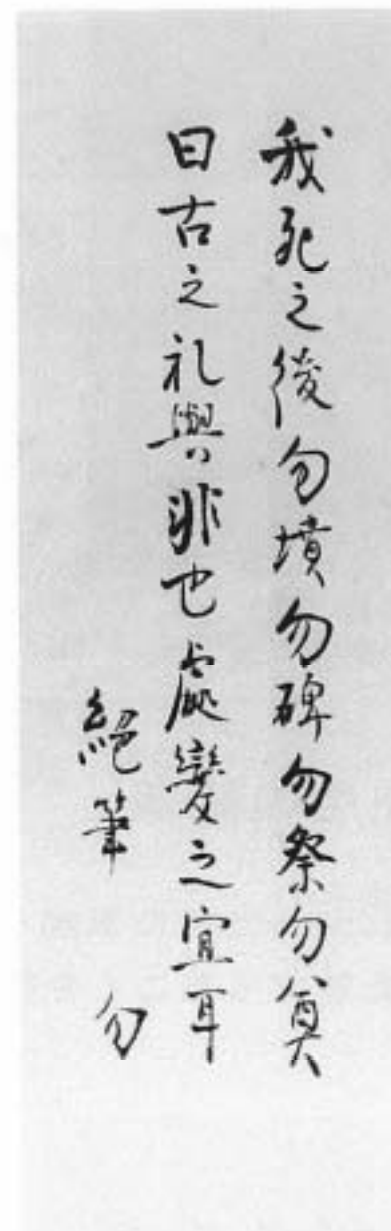 我死之後勿墳勿碑勿祭勿奠
曰古之礼與非也處變之宜耳
絕筆 勿